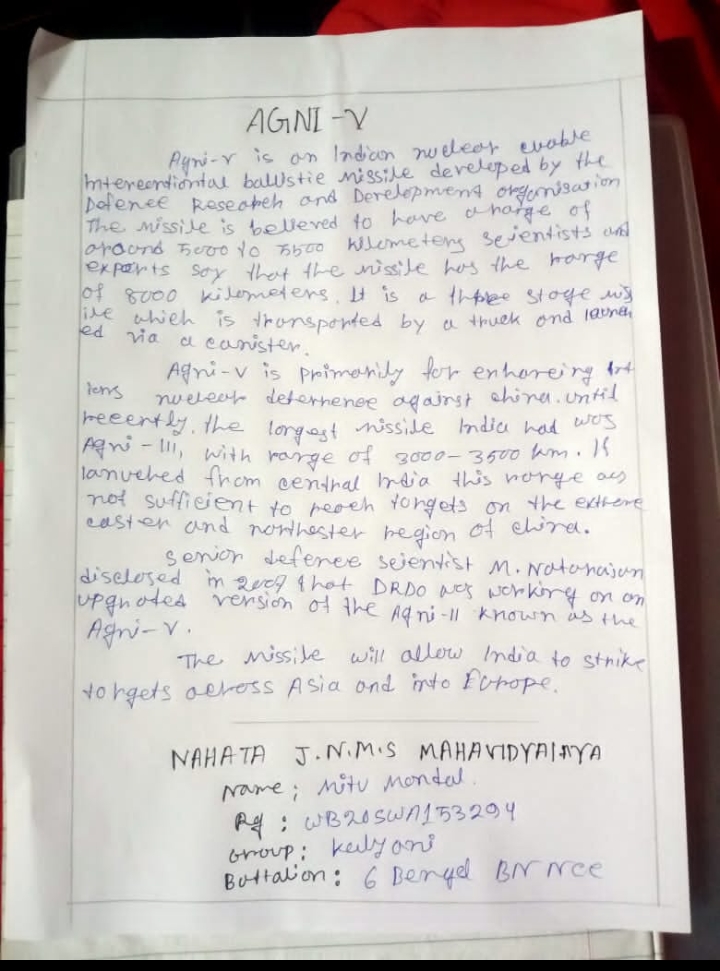 AGNI-V
Agni-V is an Indian nuclear cuable
Intercontiontal ballistic Missile developed by the
Defence Research and Development organisation
The Missile is believed to have a range of
around 5000 to 5500 kilometers scientists and
experts say that the missile has the range
of 8000 kilometers. It is a three stage mis
ile which is transported by a truck and launch
ed via a canister.
Agni-V is primarily for enhancing Int
ians nuclear deterrence against china. until
recently, the longest missile India had was
Agni-III, with range of 3000-3500 km. If
launched from central India this range was
not sufficient to reach targets on the extreme
easter and northester region of china.
Senior defence scientist M. Natarajan
disclosed in 2007 that DRDO was working on an
upgrated version of the Agni-II known as the
Agni-V.
The Missile will allow India to strike
targets across Asia and into Europe.
NAHATA J.N.M.S MAHAVIDYALAYA
Name: Mitu Mondal.
Rg: WB20SWA153294
Group: Kalyani
Battalion: 6 Bengal BN NCC